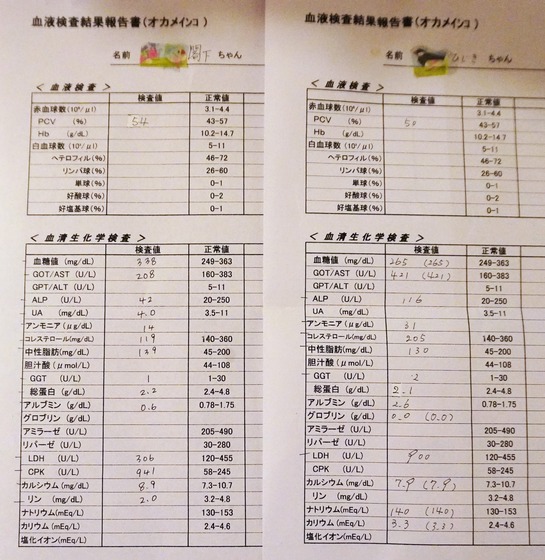 血液検査結果報告書(オカメインコ)
名前 閣下 ちゃん
< 血液検査 >
検査値 正常値
赤血球数(10⁶/μl) 3.1-4.4
PCV (%) 54 43-57
Hb (g/dL) 10.2-14.7
白血球数(10³/μl) 5-11
ヘテロフィル(%) 46-72
リンパ球(%) 26-60
単球(%) 0-1
好酸球(%) 0-2
好塩基球(%) 0-1
< 血清生化学検査 >
検査値 正常値
血糖値(mg/dL) 338 249-363
GOT/AST (U/L) 208 160-383
GPT/ALT (U/L) 5-11
ALP (U/L) 42 20-250
UA (mg/dL) 4.0 3.5-11
アンモニア(μg/dL) 14
コレステロール(mg/dL) 119 140-360
中性脂肪(mg/dL) 139 45-200
胆汁酸(μmol/L) 44-108
GGT (U/L) 1 1-30
総蛋白(g/dL) 2.2 2.4-4.8
アルブミン(g/dL) 0.6 0.78-1.75
グロブリン(g/dL)
アミラーゼ(U/L) 205-490
リパーゼ(U/L) 30-280
LDH (U/L) 306 120-455
CPK (U/L) 941 58-245
カルシウム(mg/dL) 8.9 7.3-10.7
リン (mg/dL) 2.0 3.2-4.8
ナトリウム(mEq/L) 130-153
カリウム(mEq/L) 2.4-4.6
塩化イオン(mEq/L)
血液検査結果報告書(オカメインコ)
名前 ちゃん
< 血液検査 >
検査値 正常値
赤血球数(10⁶/μl) 3.1-4.4
PCV (%) 50 43-57
Hb (g/dL) 10.2-14.7
白血球数(10³/μl) 5-11
ヘテロフィル(%) 46-72
リンパ球(%) 26-60
単球(%) 0-1
好酸球(%) 0-2
好塩基球(%) 0-1
< 血清生化学検査 >
検査値 正常値
血糖値(mg/dL) 265 (265) 249-363
GOT/AST (U/L) 421 (421) 160-383
GPT/ALT (U/L) 5-11
ALP (U/L) 116 20-250
UA (mg/dL) 3.5-11
アンモニア(μg/dL) 31
コレステロール(mg/dL) 205 140-360
中性脂肪(mg/dL) 130 45-200
胆汁酸(μmol/L) 44-108
GGT (U/L) 2 1-30
総蛋白(g/dL) 2.1 2.4-4.8
アルブミン(g/dL) 2.6 0.78-1.75
グロブリン(g/dL) 0.0 (0.0)
アミラーゼ(U/L) 205-490
リパーゼ(U/L) 30-280
LDH (U/L) 900 120-455
CPK (U/L) 58-245
カルシウム(mg/dL) 7.9 (7.9) 7.3-10.7
リン (mg/dL) 3.2-4.8
ナトリウム(mEq/L) 140 (140) 130-153
カリウム(mEq/L) 3.3 (3.3) 2.4-4.6
塩化イオン(mEq/L)